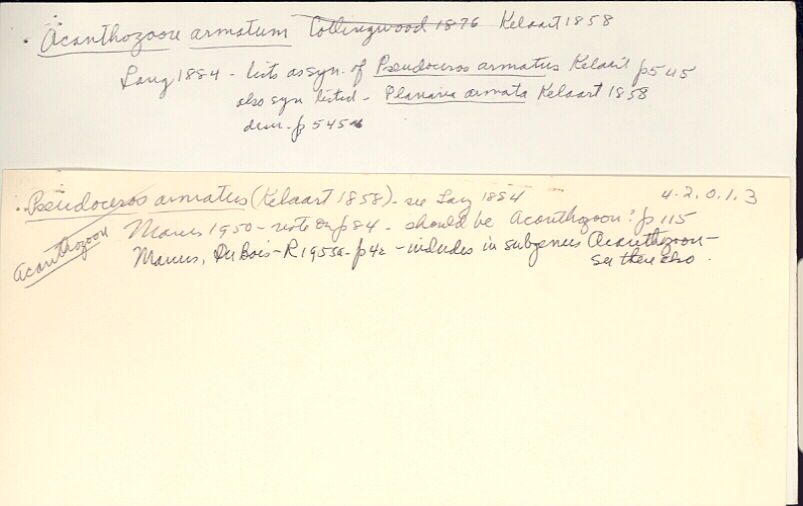 Acanthozoon armatum Collingwood 1876 Kelaart 1858
Lang 1884 - lists as syn. of Pseudoceros armatus Kelaart p545
also syn listed - Planaria armata Kelaart 1858
descr. p 545
Pseudoceros armatus (Kelaart 1858) - see Lang 1884
4.2.0.1.3
Acanthozoon
Marcus 1950 - note on p84 - should be Acanthozoon: p115
Marcus, Du Bois-R 1955a - p42 - includes in subgenus Acanthozoon -
see there also.